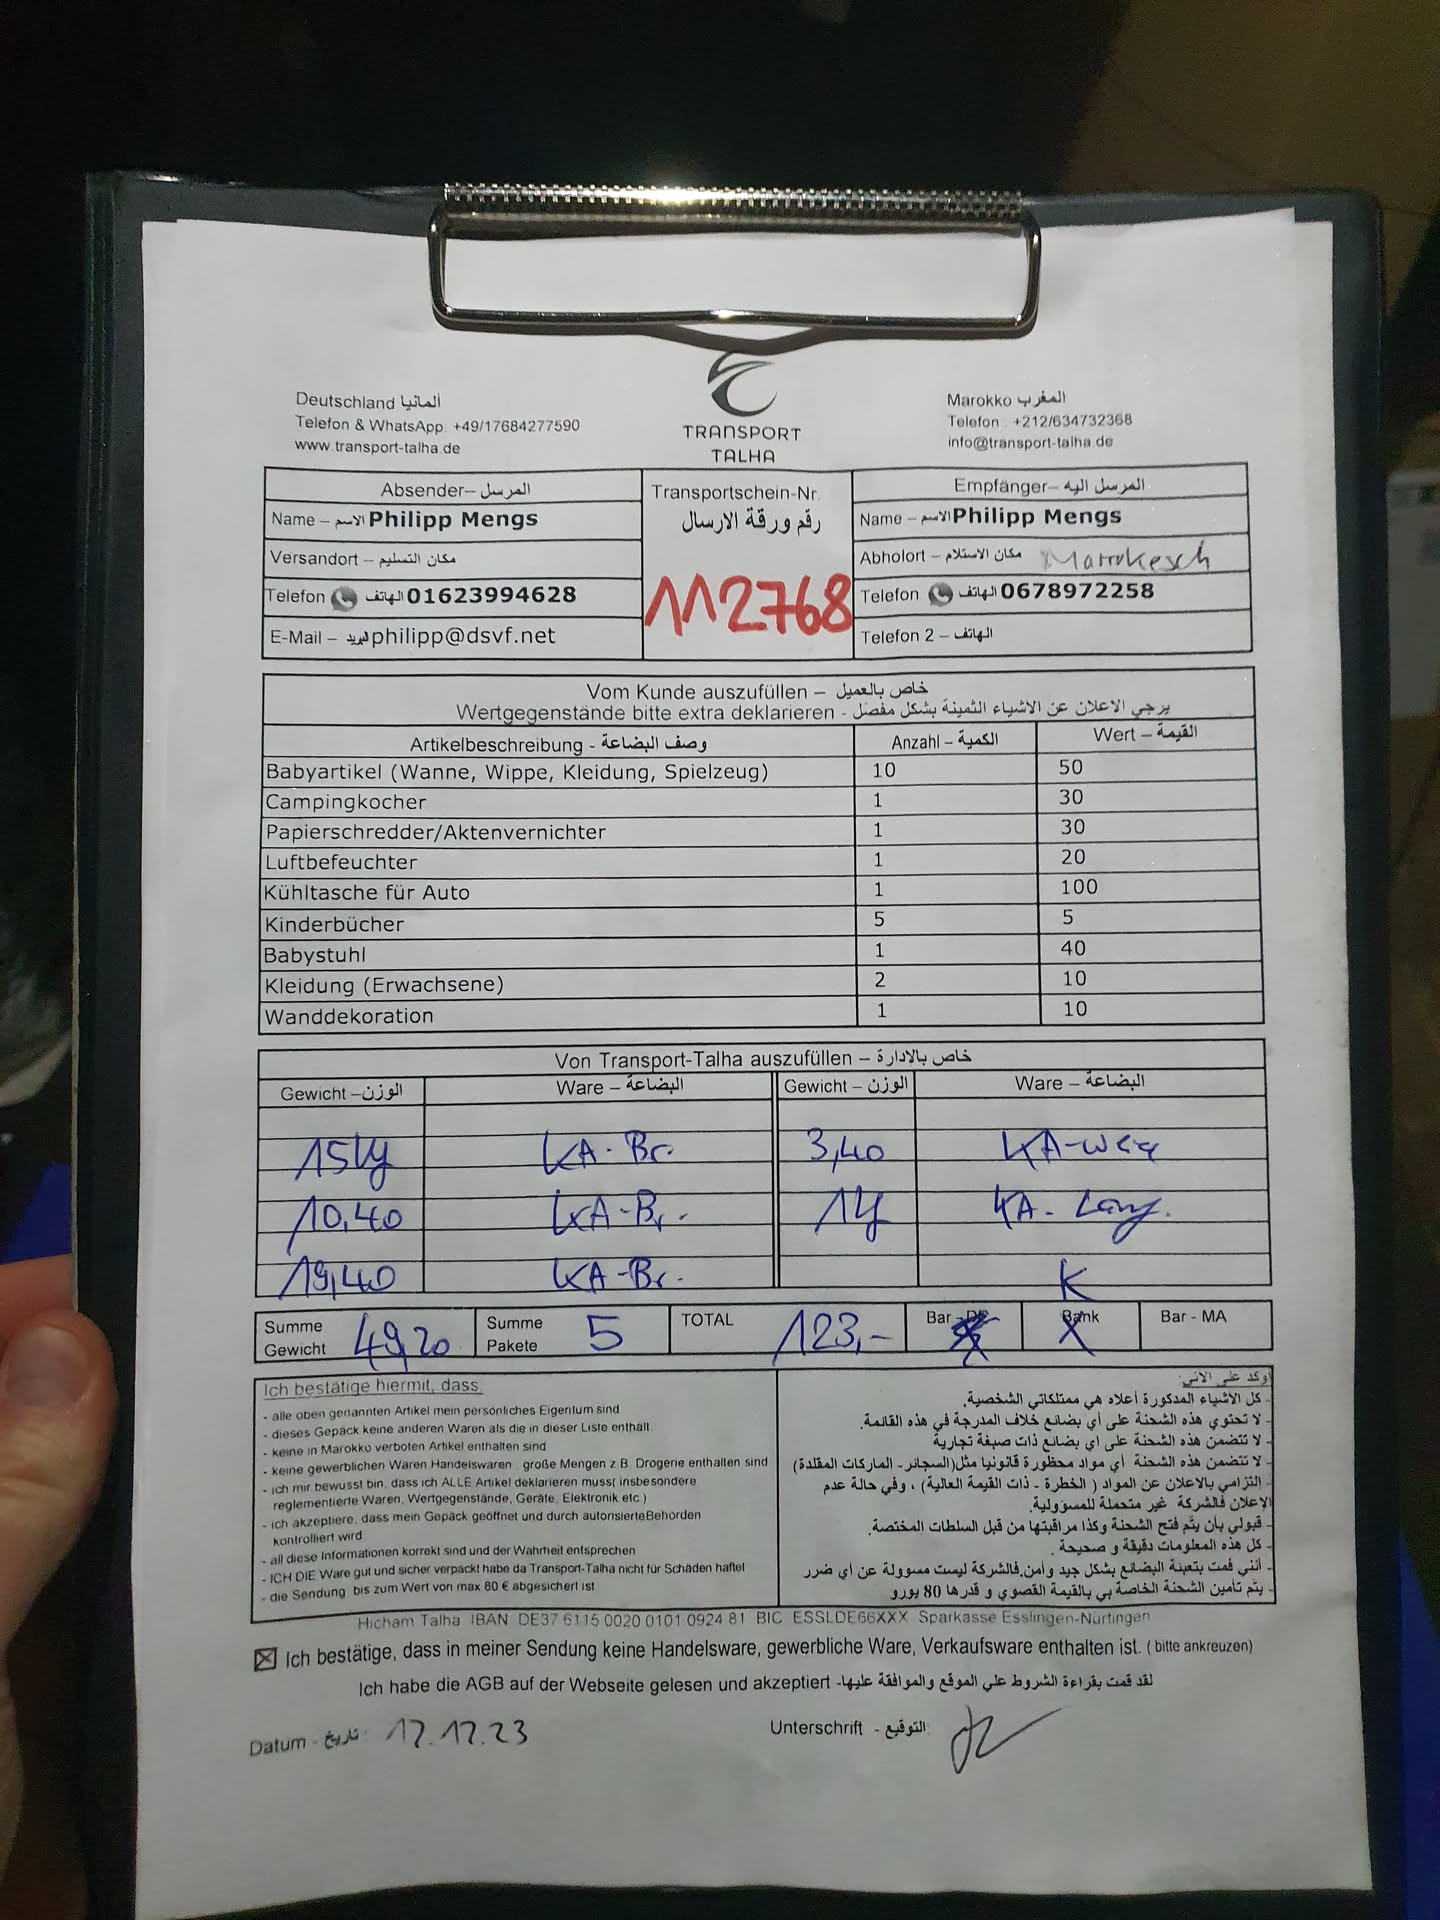 Deutschland المانيا
Telefon & WhatsApp. +49/17684277590
www.transport-talha.de
TRANSPORT
TALHA
Marokko المغرب
Telefon : +212/634732368
info@transport-talha.de
Absender– المرسل
Name – الاسم Philipp Mengs
Versandort – مكان التسليم
Telefon الهاتف 01623994628
E-Mail – البريد philipp@dsvf.net
Transportschein-Nr.
رقم ورقة الارسال
112768
Empfänger– المرسل اليه
Name – الاسم Philipp Mengs
Abholort – مكان الاستلام Marrakesch
Telefon الهاتف 0678972258
Telefon 2 – الهاتف
Vom Kunde auszufüllen – خاص بالعميل
Wertgegenstände bitte extra deklarieren - يرجي الاعلان عن الاشياء الثمينة بشكل مفصّل
Artikelbeschreibung - وصف البضاعة Anzahl – الكمية Wert – القيمة
Babyartikel (Wanne, Wippe, Kleidung, Spielzeug) 10 50
Campingkocher 1 30
Papierschredder/Aktenvernichter 1 30
Luftbefeuchter 1 20
Kühltasche für Auto 1 100
Kinderbücher 5 5
Babystuhl 1 40
Kleidung (Erwachsene) 2 10
Wanddekoration 1 10
Von Transport-Talha auszufüllen – خاص بالادارة
Gewicht –الوزن Ware – البضاعة Gewicht – الوزن Ware – البضاعة
KA-Br. 3,40
10,40 KA-Br.
19,40 KA-Br. K
Summe Gewicht 49,20 Summe Pakete 5 TOTAL 123,- Bar - DE Bank Bar - MA
Ich bestätige hiermit, dass:
- alle oben genannten Artikel mein persönliches Eigentum sind
- dieses Gepäck keine anderen Waren als die in dieser Liste enthält.
- keine in Marokko verboten Artikel enthalten sind
- keine gewerblichen Waren Handelswaren , große Mengen z.B. Drogerie enthalten sind
- ich mir bewusst bin, dass ich ALLE Artikel deklarieren muss( insbesondere
reglementierte Waren, Wertgegenstände, Geräte, Elektronik etc.)
- ich akzeptiere, dass mein Gepäck geöffnet und durch autorisierteBehörden
kontrolliert wird.
- all diese Informationen korrekt sind und der Wahrheit entsprechen
- ICH DIE Ware gut und sicher verpackt habe da Transport-Talha nicht für Schäden haftet
- die Sendung bis zum Wert von max 80 € abgesichert ist
اوكد على الاتي:
- كل الأشياء المدكورة أعلاه هي ممتلكاتي الشخصية.
- لا تحتوي هذه الشحنة على أي بضائع خلاف المدرجة في هذه القائمة.
- لا تتضمن هذه الشحنة على اي بضائع ذات صبغة تجارية
- لا تتضمن هذه الشحنة أي مواد محظورة قانونيا مثل(السجائر- الماركات المقلدة)
- التزامي بالاعلان عن المواد ( الخطرة - ذات القيمة العالية) ، وفي حالة عدم
الاعلان فالشركة غير متحملة للمسؤولية.
- قبولي بأن يتم فتح الشحنة وكذا مراقبتها من قبل السلطات المختصة.
- كل هذه المعلومات دقيقة و صحيحة .
- أنني قمت بتعبئة البضائع بشكل جيد وأمن.فالشركة ليست مسوولة عن أي ضرر
- يتم تأمين الشحنة الخاصة بي بالقيمة القصوي و قدرها 80 يورو
Hicham Talha IBAN DE37 6115 0020 0101 0924 81 BIC ESSLDE66XXX Sparkasse Esslingen-Nürtingen
Ich bestätige, dass in meiner Sendung keine Handelsware, gewerbliche Ware, Verkaufsware enthalten ist. ( bitte ankreuzen)
Ich habe die AGB auf der Webseite gelesen und akzeptiert -لقد قمت بقراءة الشروط علي الموقع والموافقة عليها
Datum - تاريخ: 12.12.23 Unterschrift - التوقيع